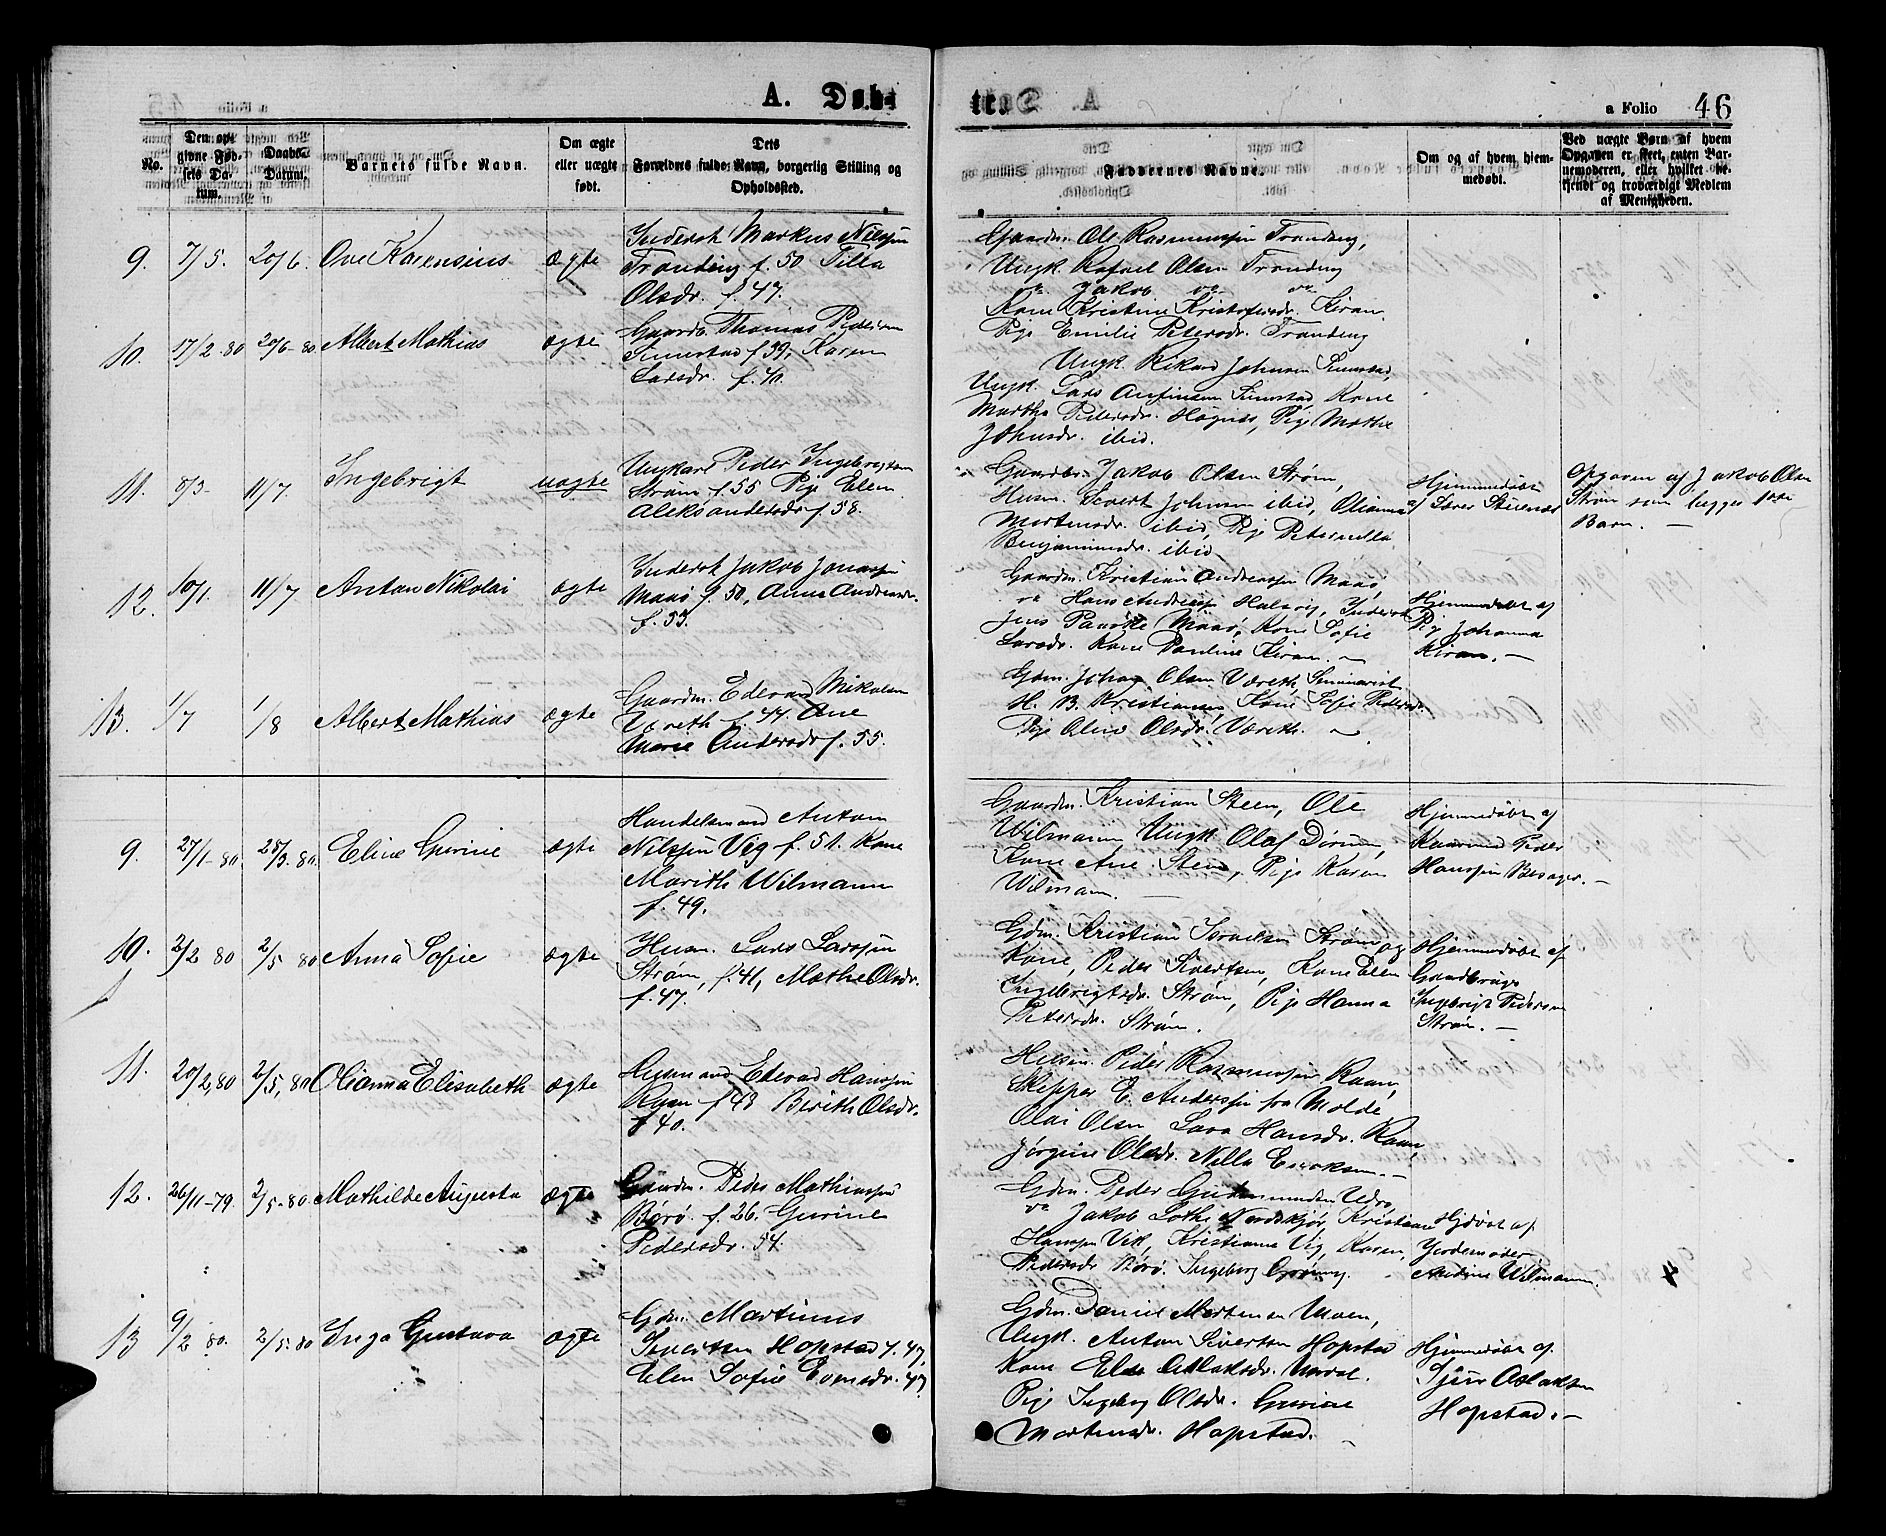 A. Døbte
a Folio 46
No.
Den opgivne Fødsels Datum.
Daabs-Datum.
Barnets fulde Navn.
Om ægte eller uægte født.
Dets Forældres fulde Navn, borgerlig Stilling og Opholdssted.
Faddernes Navne.
Om og af hvem hjemmedøbt.
Ved uægte Børn af hvem Opgaven er skeet, enten Barnemoderen, eller hvilket bekjendt og troværdigt Medlem af Menigheden.
9. 7/5. 20/6. Ove Karensius ægte
Inderst Markus Nilssen
Tranding f. 50 Pilla
Olsdr. f. 47.
Gaardm. Ole Rasmussen Tranding,
Ungk. Rafael Olsen Tranding
do Jakob do do
Kone Kristine Kristofersdr. Kiran
Pige Emilie Petersdr. Tranding
10. 17/2-80 20/6-80 Albert Mathias ægte
Gaardb. Thomas Pedersen
Sumstad f. 39, Karen
Larsdr. f. 40.
Ungk. Rikard Johnsen Sumstad,
Ungk. Lars Antonsen Sumstad Kone
Martha Pedersdr. Hognes, Pige Mathe
Johnsdr. ibid.
11. 8/3- 11/7. Ingebrigt uægte
Ungkarl Peder Ingebrigtsen
Strøm f. 55 Pige Elen
Aleksandersdr f. 58.
Gaardbr. Jakob Olsen Strøm,
Husm. Sivert Johnsen ibid, Olianna
Mortensdr. ibid, Pige Peternella
Benjaminsdr. ibid
Hjemmedøbt
af Lærer Steienæs
Opgaven af Jakob Olsen
Strøm som begges 1ste
Barn. —
12. 10/1. 11/7 Anton Nikolai ægte
Inderst Jakob Jonassen
Maasø f. 50, Anna Andreasdr.
f. 53.
Gaardm. Kristian Andreassen Maasø
do Hans Andreas Halsvig, Inderst
Jens Paaske Maasø, Kone Sofie
Larsdr. Kone Pauline Kiran. —
Hjemmedøbt af
Pige Johanna
Kiran. —
13. 1/7 1/8 Albert Mathias ægte
Gaardm. Edevard Mikalsen
Væreth f. 44. Ane
Marie Andersdr f. 55.
Gdm. Johan Olsen Væreth, Seminarist
H. B. Kristiansen, Kone Sofie Pedersdr.
Pige Oline Olsdr. Væreth. —
9. 27/1-80. 28/3-80. Eline Gurine ægte
Handelsmand Anton
Nilssen Vig f. 51. Kone
Marith Wilmann
f. 49.
Gaardm. Kristian Steen, Ole
Wilmann Ungk. Olaf Dørum,
Kone Ane Steen, Pige Karen
Wilmann. —
Hjemmedøbt af
Kaarmand Peder
Hanssen Besager. —
10. 2/2 80 2/5 80 Anna Sofie ægte
Husm. Lars Larssen
Strøm, f. 41, Mathe Olsdr.
f. 47.
Gdm. Kristian Israelsen Strøm og
Kone, Peder Sivertsen, Kone Elen
Ingebrigtsdr. Strøm, Pige Hanna
Petersdr. Strøm.
Hjemmedøbt af
Gaardbruger
Ingebrigt Pedersen
Strøm. —
11. 20/2, 80 2/5, 80 Olianna Elisabeth ægte
Husmand Edevard Hanssen
Raan f 48 Berith Olsdr.
f 40.
Husm. Peder Rasmussen Raan,
Skipper E. Anderssen fra Molde,
Olai Olsen, Lava Hansdr. Raan,
Jørgine Olsdr. Nilla Eriksen. —
12. 26/11-79. 2/5-80 Mathilde Augusta ægte
Gaardm. Peder Mathiassen
Børø. f. 26. Gurine
Pedersdr. 54.
Gdm. Peder Gudmundsen Udrø,
do Jakob Loths Nordskjør, Kristian
Hanssen Vik, Kristianna Vig, Karen
Pedersdr Børø. Ingeborg Grøning.
Hjdøbt af
Jordemoder
Andrine Wilmann.
13 9/2 80. 2/5-80 Inga Gustava ægte
Gdm. Martinus
Sivertsen Hopstad f. 47,
Elen Sofie Evensdr. 47
Gdm. Daniel Mortensen Moen,
Ungk. Anton Sivertsen Hopstad
Kone Else Aslaksdr. Udral.
Pige Ingeborg Olsdr. Gurine
Mortensdr. Hopstad. —
Hjemmedøbt af
Sjur Aslaksen
Hopstad. —